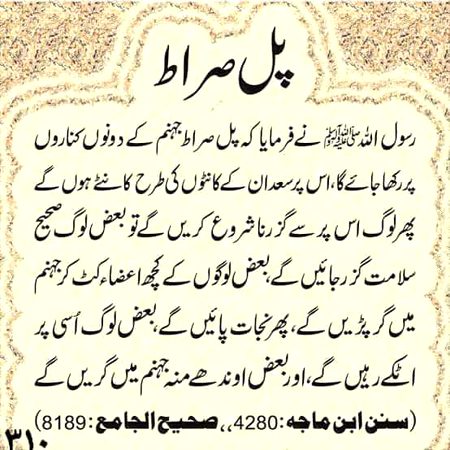 پل صراط
رسول اللہ ﷺ نے فرمایا کہ پل صراط جہنم کے دونوں کناروں
پر رکھا جائے گا، اس پر سعدان کے کانٹوں کی طرح کانٹے ہوں گے
پھر لوگ اس پر سے گزرنا شروع کریں گے تو بعض لوگ صحیح
سلامت گزر جائیں گے، بعض لوگوں کے کچھ اعضاء کٹ کر جہنم
میں گر پڑیں گے، پھر نجات پائیں گے، بعض لوگ اُسی پر
اٹکے رہیں گے، اور بعض اوندھے منہ جہنم میں گریں گے
(سنن ابن ماجه: 4280،، صحيح الجامع: 8189)
۳۱۰